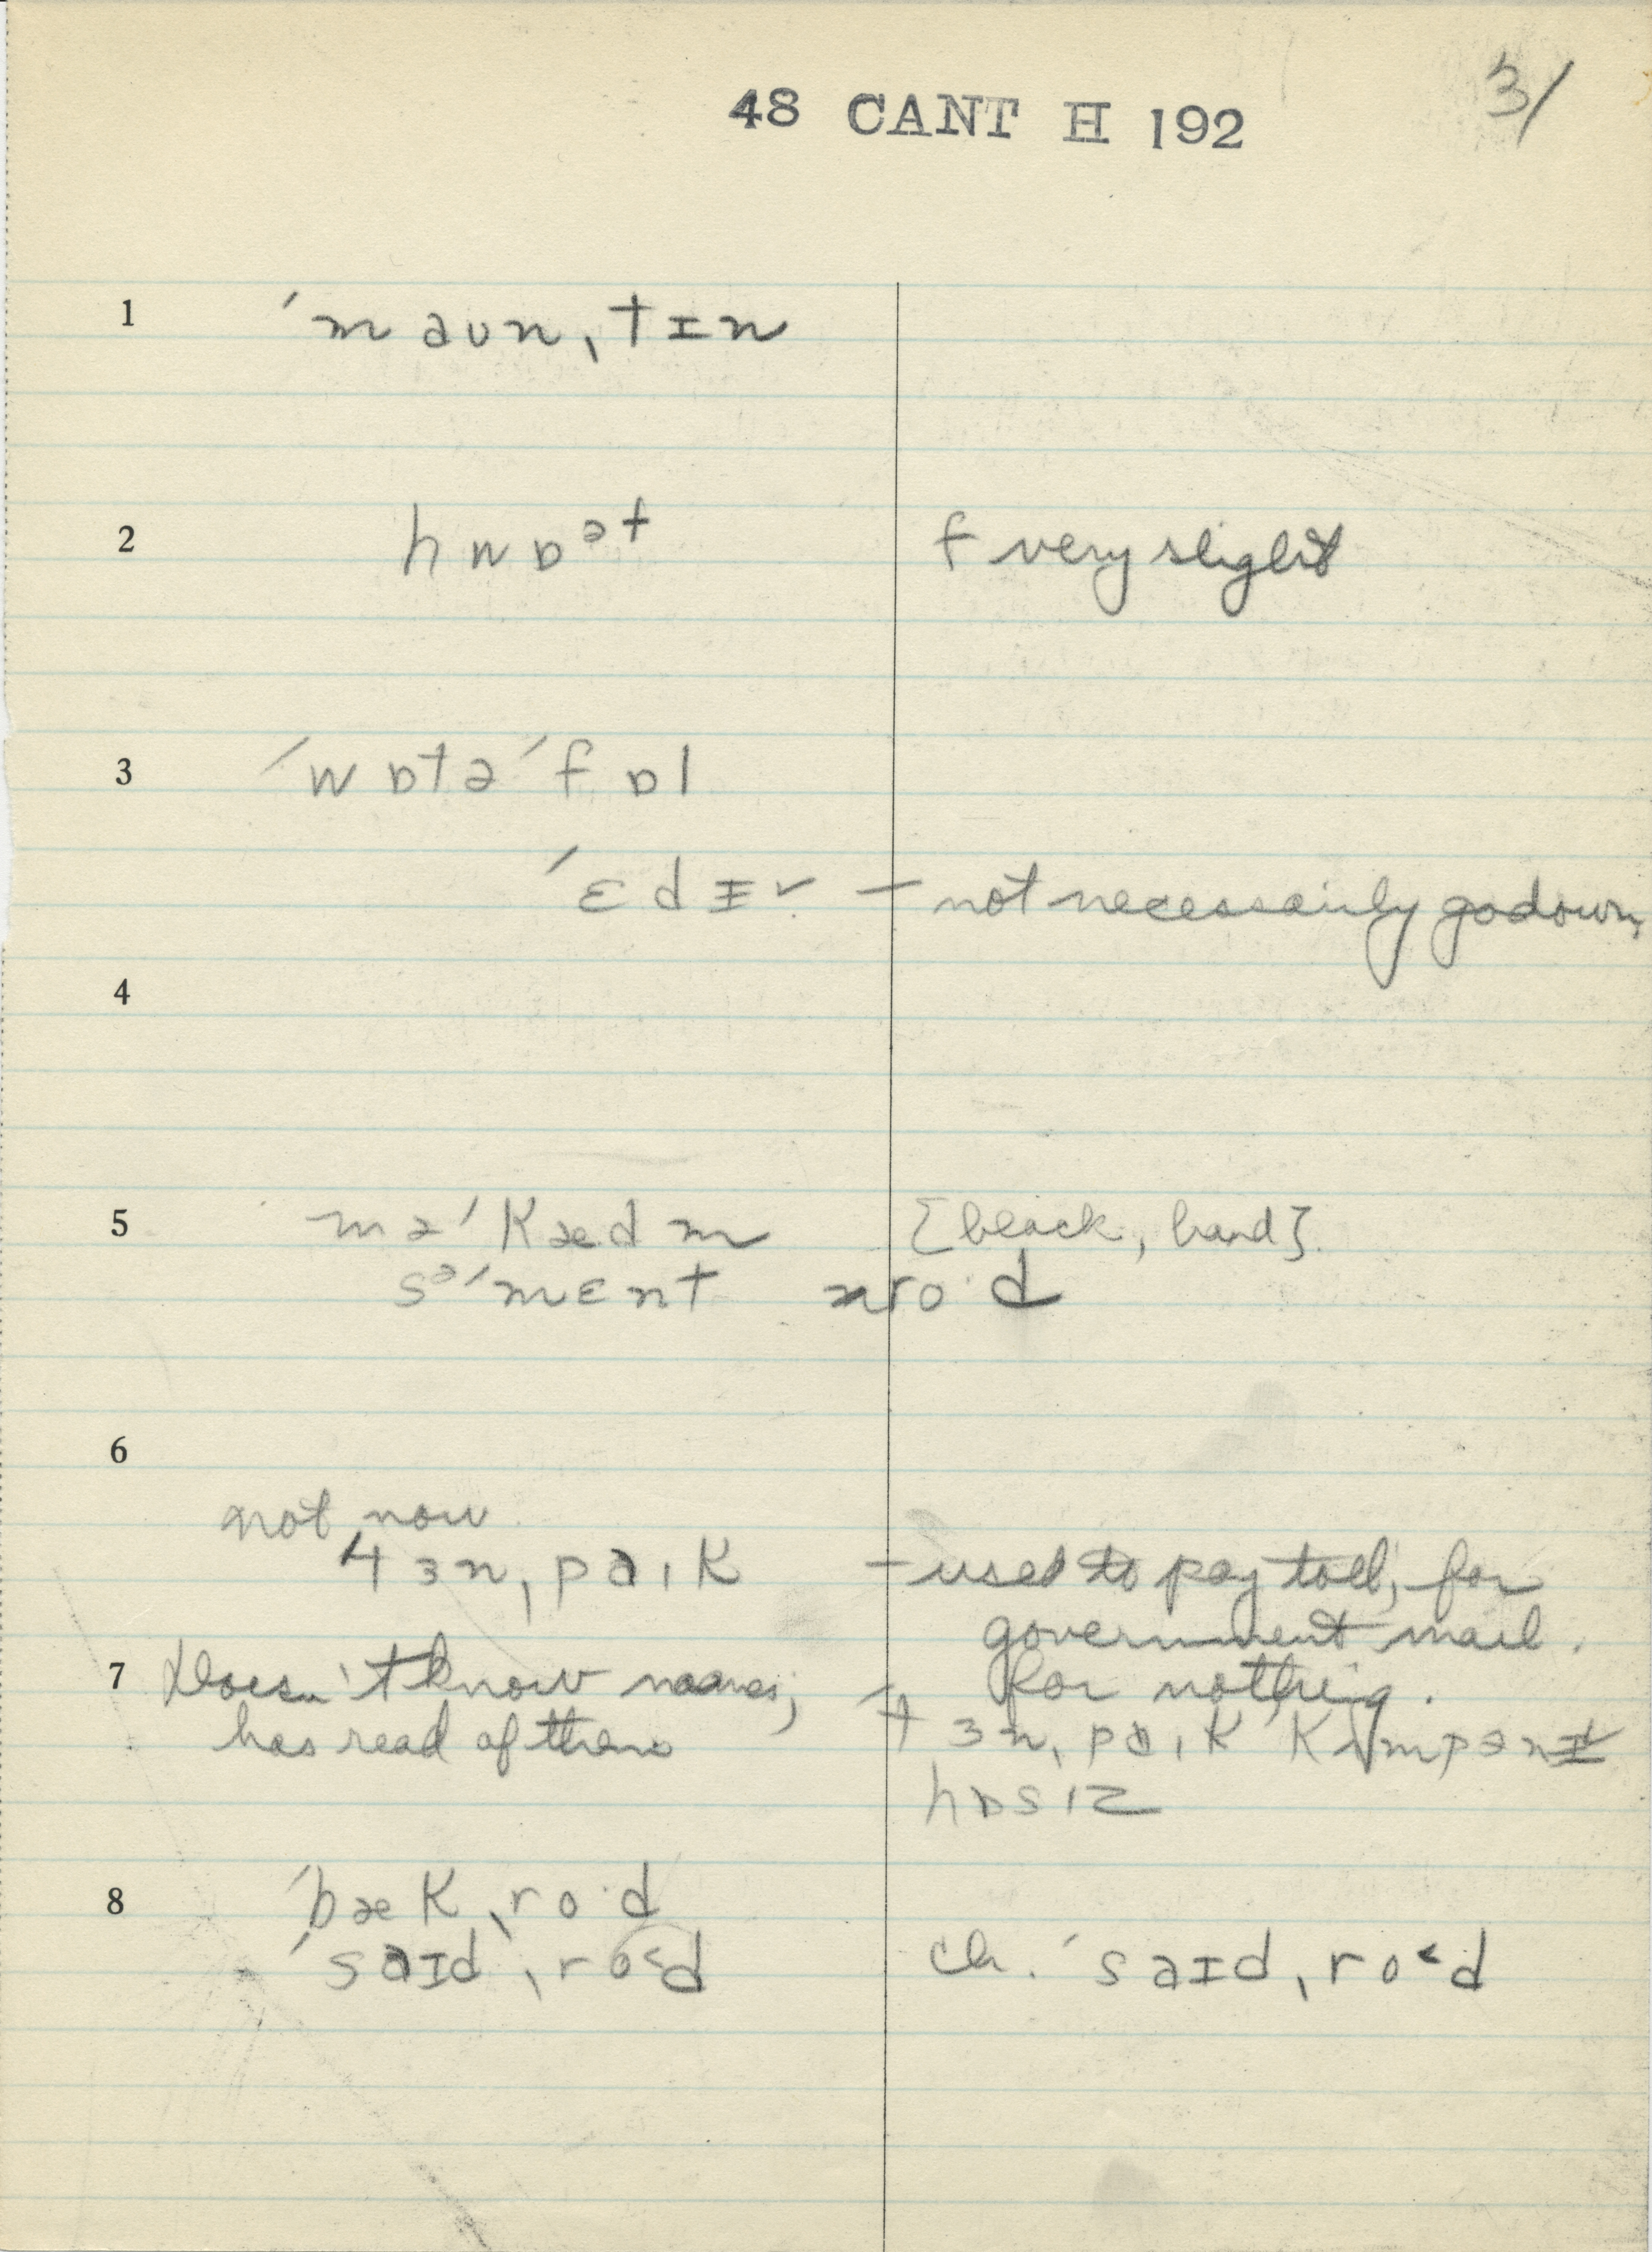 48 CANT H 192
3/
1 ˈmaʊn ˌtɪn
2 hwɒᵊt f very slight
3 ˈwɒtəˈfɒl
ˈɛdɪ˅ – not necessarily go down
4
5 məˈkædm [black, hard]
sᵊˈmɛnt nro·d
6
not now
tɜnˌpaɪk – used to pay toll; for
government mail.
7 Doesn't know names; for nothing.
has read of them tɜnˌpaɪk kʌmpənɪ
hɒsɪz
8 ˈbækˌro·d
ˈsaɪdˌro˂d ch. ˈsaɪdˌro˂d